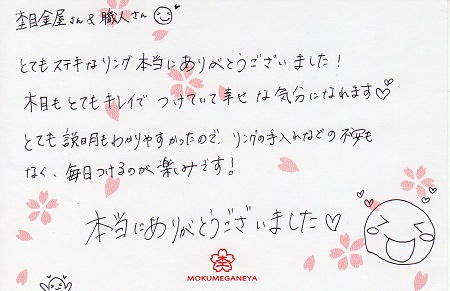 杢目金屋さん & 職人さん
とてもステキなリング本当にありがとうございました！
木目もとてもキレイで つけていて幸せな気分になれます♡
とても説明もわかりやすかったので、リングの手入れなどの不安も
なく、毎日つけるのが楽しみです！
本当にありがとうございました♡
MOKUMEGANEYA